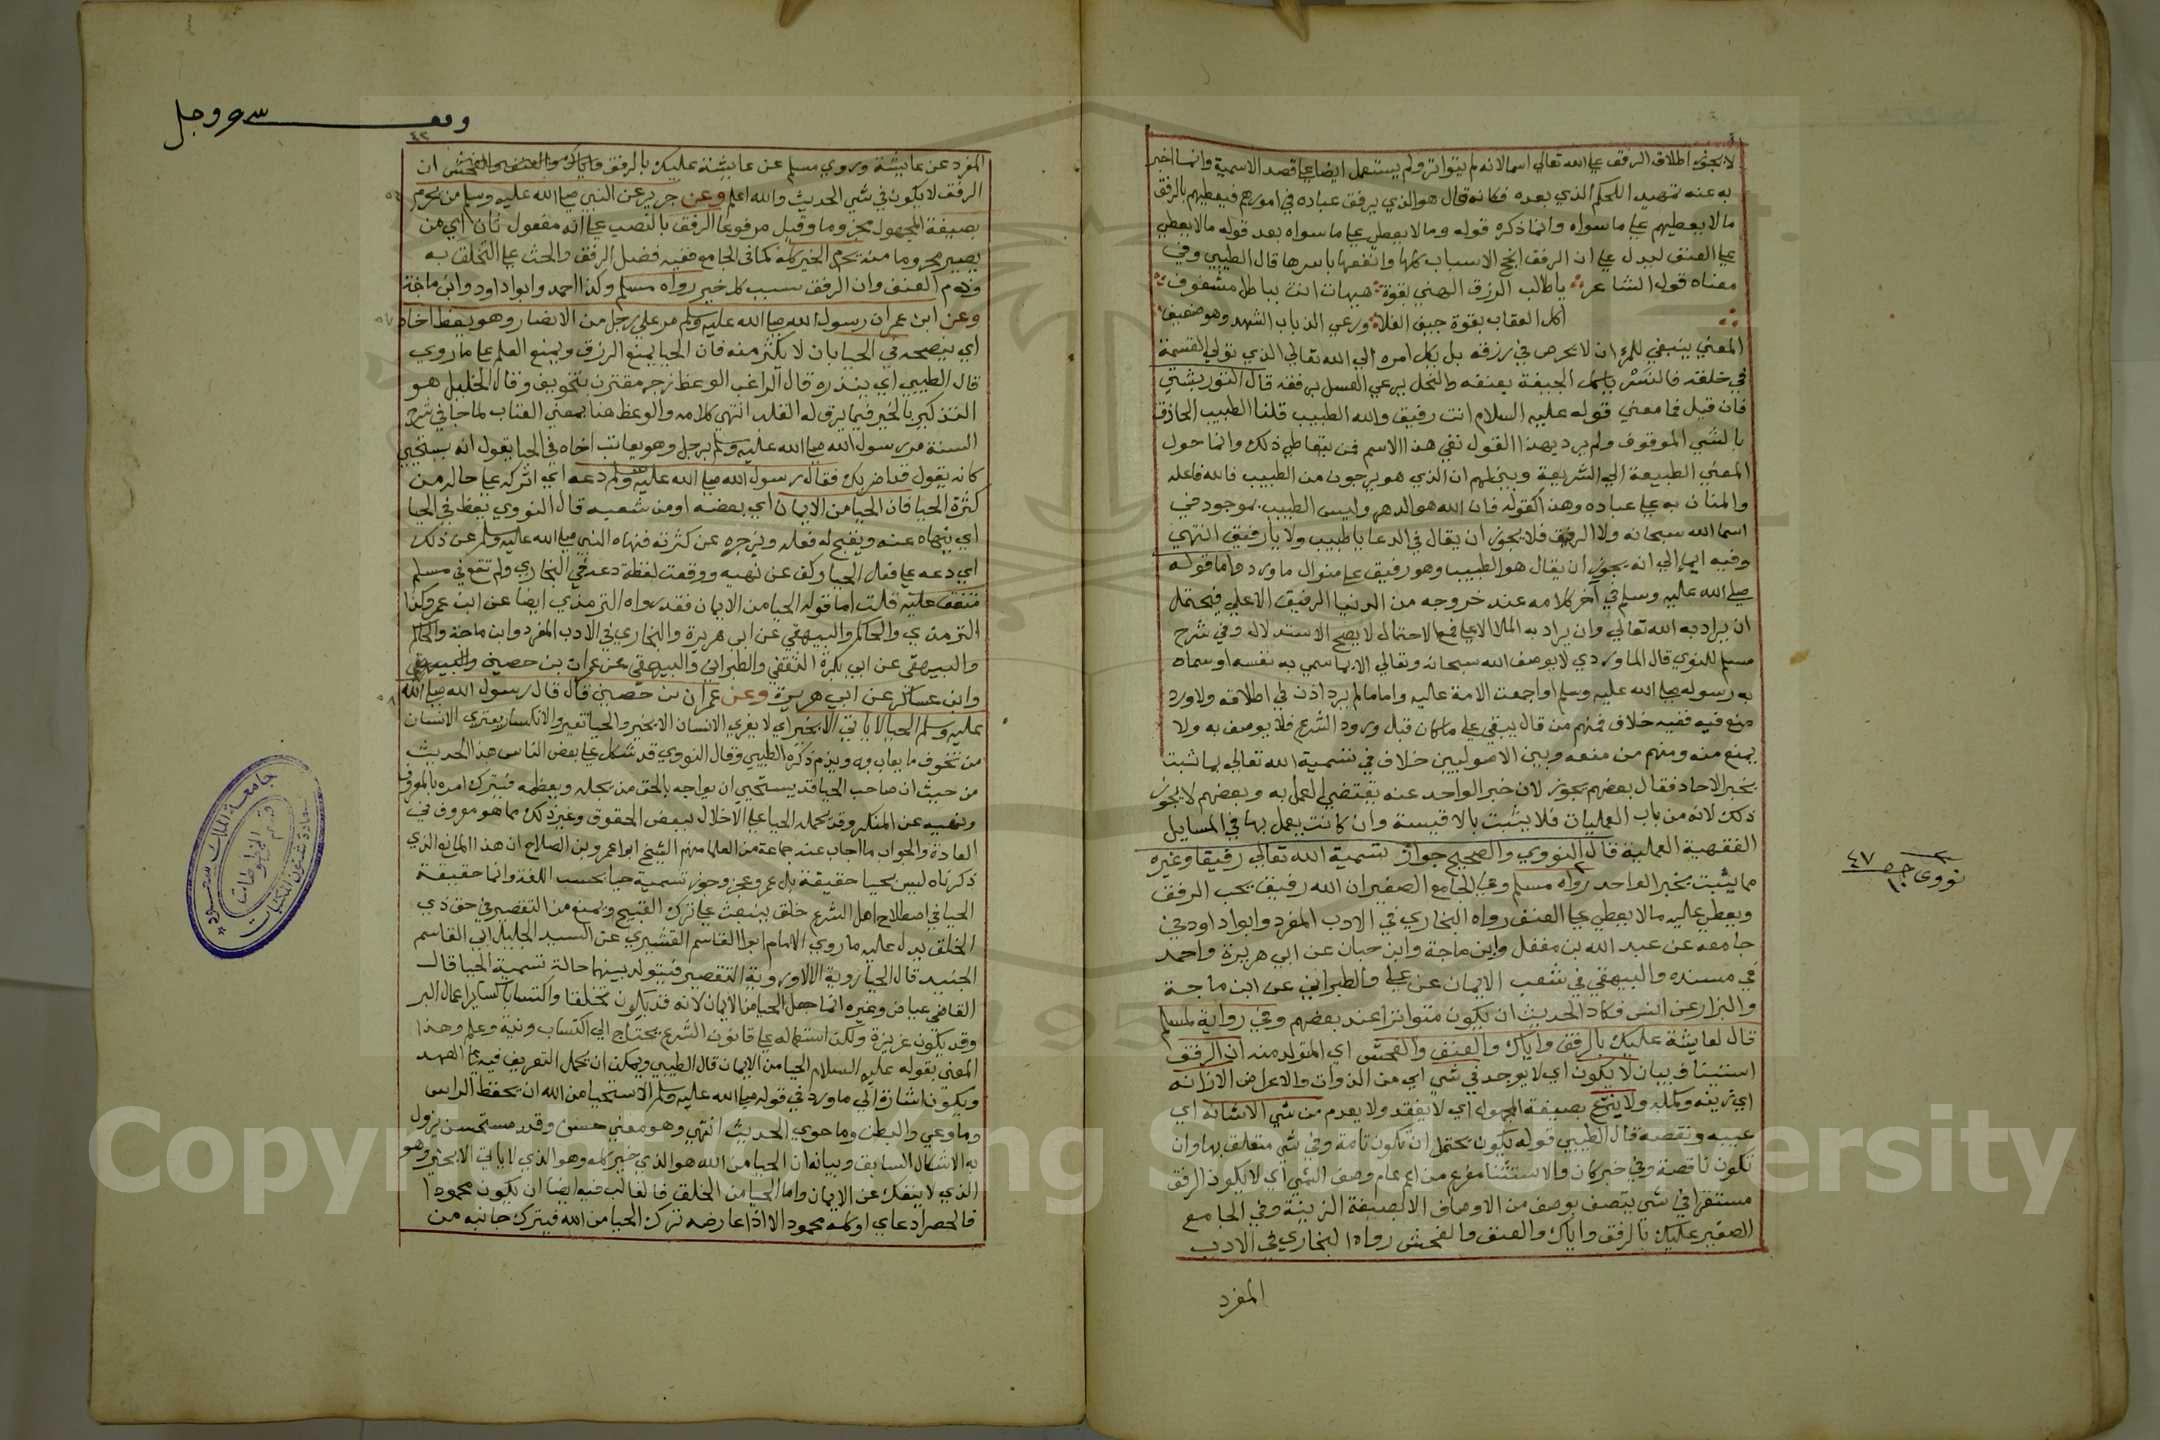 لا يجوز اطلاق الرفق على الله تعالى اسما لانه لم يتواتر ولم يستعمل ايضا على قصد الاسمية وانما اخبر
به عنه تمهيدا للحكم الذي بعده فكانه قال هو الذي يرفق عباده في امورهم فيعطيهم بالرفق
ما لا يعطيهم على ما سواه وانما ذكره قوله وما لا يعطي على ما سواه بعد قوله ما لا يعطي
على العنف ليدل على ان الرفق انجح الاسباب كلها وانفعها باسرها قال الطيبي وفي
معناه قول الشاعر يا طالب الرزق الهني بقوة هيهات انت بباطل مشغوف
اكل العقاب بقوة جيف الفلا ورعي الذباب الشهد وهو ضعيف
المعني ينبغي للمرء ان لا يحرص في رزقه بل يكل امره الي الله تعالي الذي تولي القسمة
في خلقه فالنسر ياكل الجيفة بعنفه والنحل يرعي العسل برفقه قال التوربشتي
فان قيل فما معني قوله عليه السلام انت رفيق والله الطبيب قلنا الطبيب الحاذق
بالشي الموقوف ولم يرد بهذا القول نفي هذا الاسم ممن يتعاطي ذلك وانما حول
المعني الطبيعة الي الشريعة وبين لهم ان الذي هو يرجون من الطبيب فالله فاعله
والمنان به على عباده وهذا كقوله فان الله هو الدهر وليس الطبيب بموجود في
اسما الله سبحانه ولا الرفيق فلا يجوز ان يقال في الدعا يا طبيب ولا يا رفيق انتهي
وفيه ايما الي انه يجوز ان يقال هو الطبيب وهو رفيق على منوال ما ورد واما قوله
صلي الله عليه وسلم في آخر كلامه عند خروجه من الدنيا الرفيق الاعلي فيحتمل
ان يراد به الله تعالي وان يراد به الملا الاعلي فمع الاحتمال لا يصح الاستدلال وفي شرح
مسلم للنووي قال الماوردي لا يوصف الله سبحانه وتعالي الا بما سمي به نفسه او سماه
به رسوله صلى الله عليه وسلم او اجمعت الامة عليه واما ما لم يرد اذن في اطلاقه ولا ورد
منع فيه ففيه خلاف فمنهم من قال يبقي على ما كان قبل ورود الشرع فلا يوصف به ولا
يمنع منه ومنهم من منعه وبين الاصوليين خلاف في تسمية الله تعالي بما ثبت
بخبر الاحاد فقال بعضهم يجوز لان خبر الواحد عنه يقتضي العمل به وبعضهم لا يجوز
ذلك لانه من باب العمليات فلا يثبت بالاقيسة وان كانت يعمل بها في المسايل
الفقهية العملية قال النووي والصحيح جواز تسمية الله تعالي رفيقا وغيره
مما يثبت بخبر الواحد رواه مسلم وفي الجامع الصغير ان الله رفيق يحب الرفق
ويعطي عليه ما لا يعطي على العنف رواه البخاري في الادب المفرد وابو داود في
جامعه عن عبد الله بن مغفل وابن ماجة وابن حبان عن ابي هريرة واحمد
في مسنده والبيهقي في شعب الايمان عن علي والطبراني عن ابن ماجة
والبزار عن انس فكاد الحديث ان يكون متواترا عند بعضهم وفي رواية لمسلم
قال لعايشة عليك بالرفق واياك والعنف والفحش اي المتولد منه ان الرفق
استينا ف بيان لا يكون اي لا يوجد في شي اي من الذوات والاعراض الا زانه
اي زينه وكمله ولا ينزع بصيغة المجهول اي لا يفقد ولا يعدم من شي الا شانه اي
عيبه ونقصه قال الطيبي قوله يكون يحتمل ان تكون تامة وفي شي متعلق بها وان
تكون ناقصة وفي خبر كان والاستثنا مفرغ من اعم عام وصف الشي اي لا يكون الرفق
مستقرا في شي يتصف بوصف من الاوصاف الا لصيغة الزينة وفي الجامع
الصغير عليك بالرفق واياك والعنف والفحش رواه البخاري في الادب
المفرد
نووي
٤٧
٤٢
المفرد عن عايشة وروي مسلم عن عايشة عليك بالرفق واياك والعنف والفحش ان
الرفق لا يكون في شي الحديث والله اعلم وعن جرير عن النبي صلى الله عليه وسلم من يحرم
بصيغة المجهول مجزوما وقيل مرفوعا الرفق بالنصب على انه مفعول ثان اي من
يصير محروما منه يحرم الخير كله كما في الجامع ففيه فضل الرفق والحث على التخلق به
وذم العنف وان الرفق سبب كل خير رواه مسلم وكذا احمد وابو داود وابن ماجة
وعن ابن عمر ان رسول الله صلى الله عليه وسلم مر علي رجل من الانصار وهو يعظ اخاه
اي ينصحه في الحيا بان لا يكثر منه فان الحيا يمنع الرزق ويمنع العلم على ما روي
قال الطيبي اي ينذره قال الراغب الوعظ زجر مقترن بتخويف وقال الخليل هو
التذكير بالخير فيما يرق له القلب انتهي كلامه والوعظ هنا بمعني العتاب لما جا في شرح
السنة مر رسول الله صلى الله عليه وسلم برجل وهو يعاتب اخاه في الحيا يقول انه يستحيي
كانه يقول قد اضر بك فقال رسول الله صلى الله عليه وسلم دعه اي اتركه على حاله من
كثرة الحيا فان الحيا من الايمان اي بعضه او من شعبه قال النووي يعظ في الحيا
اي ينهاه عنه ويقبح له فعله ويزجره عن كثرته فنهاه النبي صلى الله عليه وسلم عن ذلك
اي دعه على فعل الحيا وكف عن نهيه ووقعت لفظة دعه في البخاري ولم تقع في مسلم
متفق عليه قلت اما قوله الحيا من الايمان فقد رواه الترمذي ايضا عن ابن عمر وكذا
الترمذي والحاكم والبيهقي عن ابي هريرة والبخاري في الادب المفرد وابن ماجة والحاكم
والبيهقي عن ابي بكرة الثقفي والطبراني والبيهقي عن عمران بن حصين والبيهقي
وابن عساكر عن ابي هريرة وعن عمران بن حصين قال قال رسول الله صلى الله
عليه وسلم الحيا لا ياتي الا بخير اي لا يعري الانسان الا بخير والحيا تغير وانكسار يعتري الانسان
من تخوف ما يعاب به ويذم ذكره الطيبي وقال النووي قد شكل على بعض الناس هذا الحديث
من حيث ان صاحب الحيا قد يستحيي ان يواجه بالحق من يجله ويعظمه فيترك امره بالمعروف
ونهيه عن المنكر وقد يحمله الحيا على الاخلال ببعض الحقوق وغير ذلك مما هو معروف في
العادة والجواب ما اجاب عنه جماعة من العلما منهم الشيخ ابو عمرو بن الصلاح ان هذا المانع الذي
ذكرناه ليس بحيا حقيقة بل عجز وخور تسمية حيا بحسب اللغة وانما حقيقة
الحيا في اصطلاح اهل الشرع خلق يبعث على ترك القبيح ويمنع من التقصير في حق ذي
الخلق يدل عليه ما روي الامام ابو القاسم القشيري عن السيد الجليل ابي القاسم
الجنيد قال الحيا روية الالاء وروية التقصير فيتولد بينهما حالة تسمي الحيا قال
القاضي عياض وغيره انما جعل الحيا من الايمان لانه قد يكون تخلقا واكتسابا كساير اعمال البر
وقد يكون غريزة ولكن استعماله على قانون الشرع يحتاج الي اكتساب ونية وعلم وهذا
المعني بقوله عليه السلام الحيا من الايمان قال الطيبي ويمكن ان يحمل التعريف فيه على العهد
ويكون اشارة الي ما ورد في قوله صلى الله عليه وسلم الاستحيا من الله ان يحفظ الراس
وما وعي والبطن وما حوي الحديث انتهي وهو معني حسن وقدر مستحسن يزول
به الاشكال السابق وبيانه ان الحيا من الله هو الذي خير كله وهو الذي لا ياتي الا بخير وهو
الذي لا ينفك عن الايمان واما الحيا من الخلق فالغالب فيه ايضا ان يكون محمودا
فالحصر ادعاي او كله محمود الا اذا عارضه ترك الحيا من الله فيترك جانبه من
جامعة الملك سعود
قسم المخطوطات
عمادة شئون المكتبات
Copyright © King Saud University